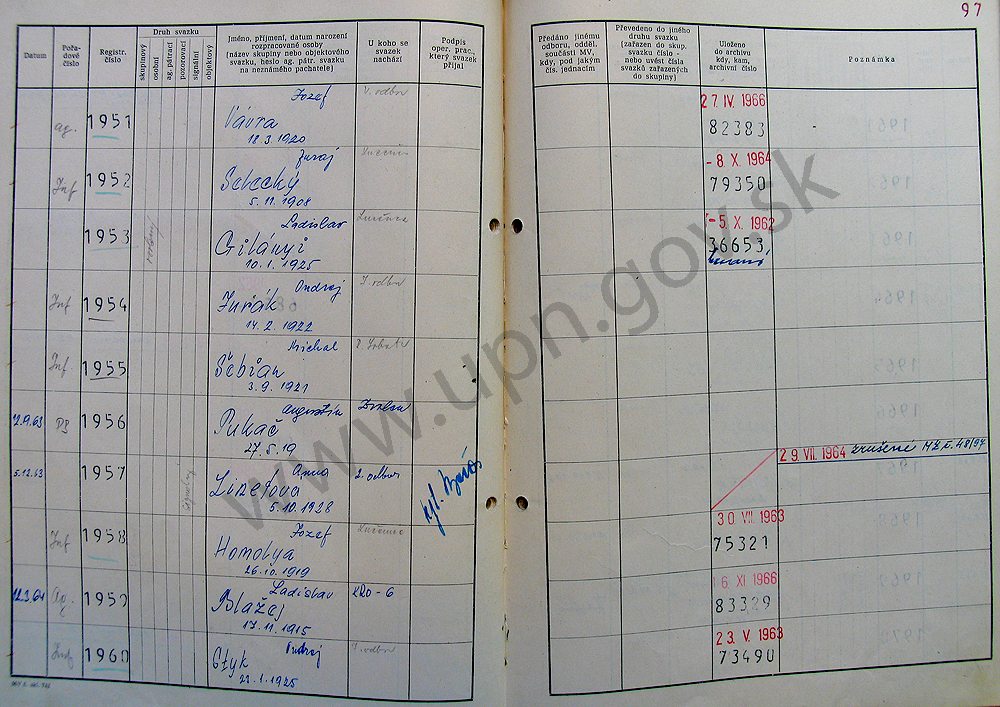 97
Datum
Pořa-
dové
číslo
Registr.
číslo
Druh svazku
skupinový
osobní
ag. pátrací
pozorovací
signální
objektový
Jméno, příjmení, datum narození
rozpracované osoby
(název skupiny nebo objektového
svazku, heslo ag. pátr. svazku
na neznámého pachatele)
U koho se
svazek
nachází
Podpis
oper. prac.,
který svazek
přijal
Předáno jinému
odboru, odděl.
součásti MV,
kdy, pod jakým
čís. jednacím
Převedeno do jiného
druhu svazku
(zařazen do skup.
svazku číslo -
nebo uvést čísla
svazků zařazených
do skupiny)
Uloženo
do archivu
kdy, kam,
archivní číslo
Poznámka
ag. 1951 Jozef V. odbor 27. IV. 1966
Vávra 82383
18.3.1920
Inf 1952 Juraj Lučenec - 8. X. 1964
Selecký 79350
5.11.1908
1953 Ladislav Lučenec - 5. X. 1962
Gilányi 36653
10.1.1925
Inf 1954 Ondrej V. odbor
Jurák
14.2.1922
Inf 1955 Michal R. Sobota
Šebian
3.9.1921
12.9.63 1956 Augustín Zvolen
Pukač
27.5.19
29. VII. 1964 zrušené
5.12.63 1957 Anna 2. odbor
5.10.1928
Inf 1958 Jozef Lučenec 30 VII 1963
Homolya 75321
26.10.1919
12.3.64 Ag. 1959 Ladislav KRO - 6 16 XI 1966
Blažej 83329
17.11.1915
1960 Ondrej V. odbor 23. V. 1963
Styk 73490
23.1.1925
www.upn.gov.sk